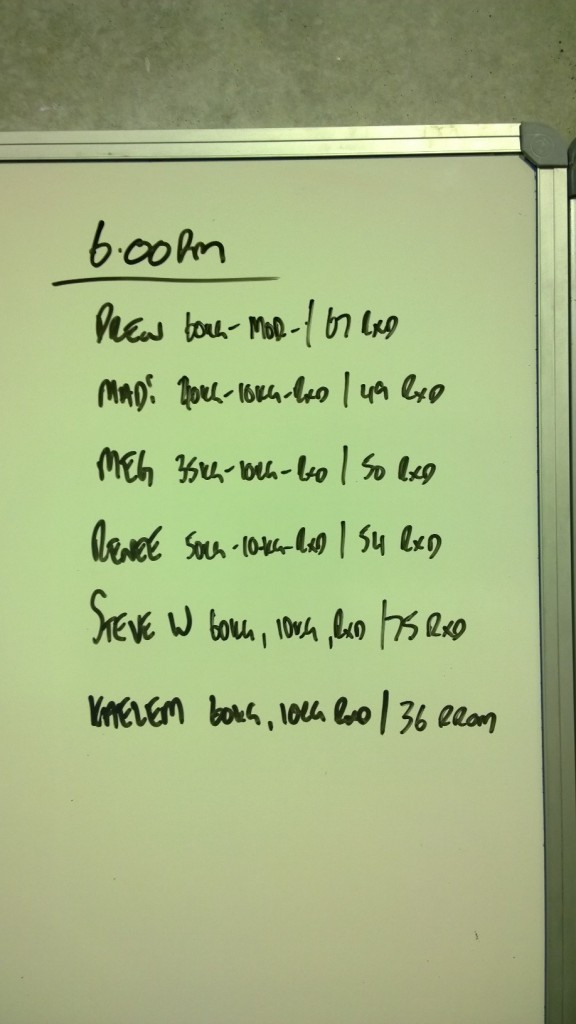 6.00PM
DREW 60KG-MOD-/67 RXD
MADI 40KG-10KG-RXD / 49 RXD
MEG 35KG-10KG-RXD / 50 RXD
RENEE 50KG-10KG-RXD / 54 RXD
STEVE W 60KG, 10KG, RXD /75 RXD
KAELEM 60KG, 10KG RXD / 36 RROM